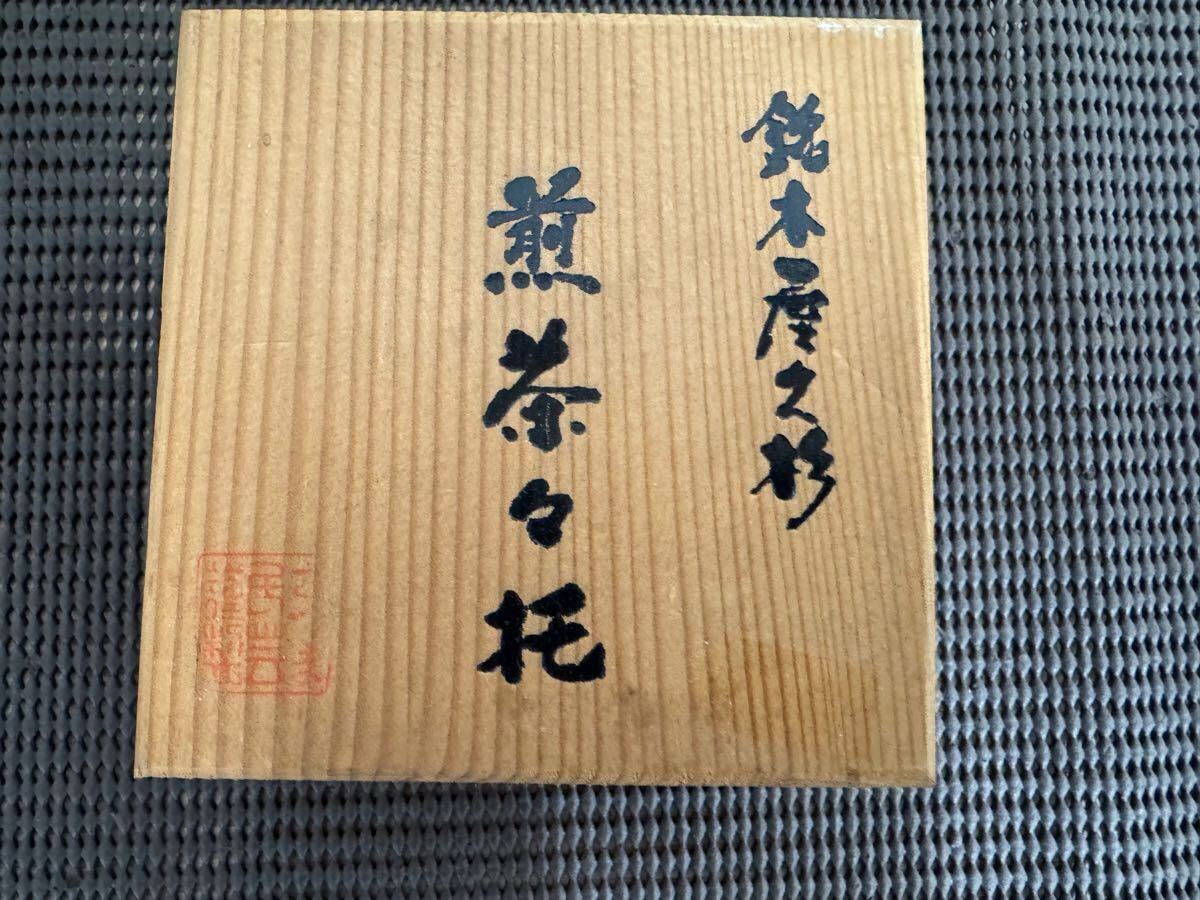 銘木屋久杉
煎茶々托